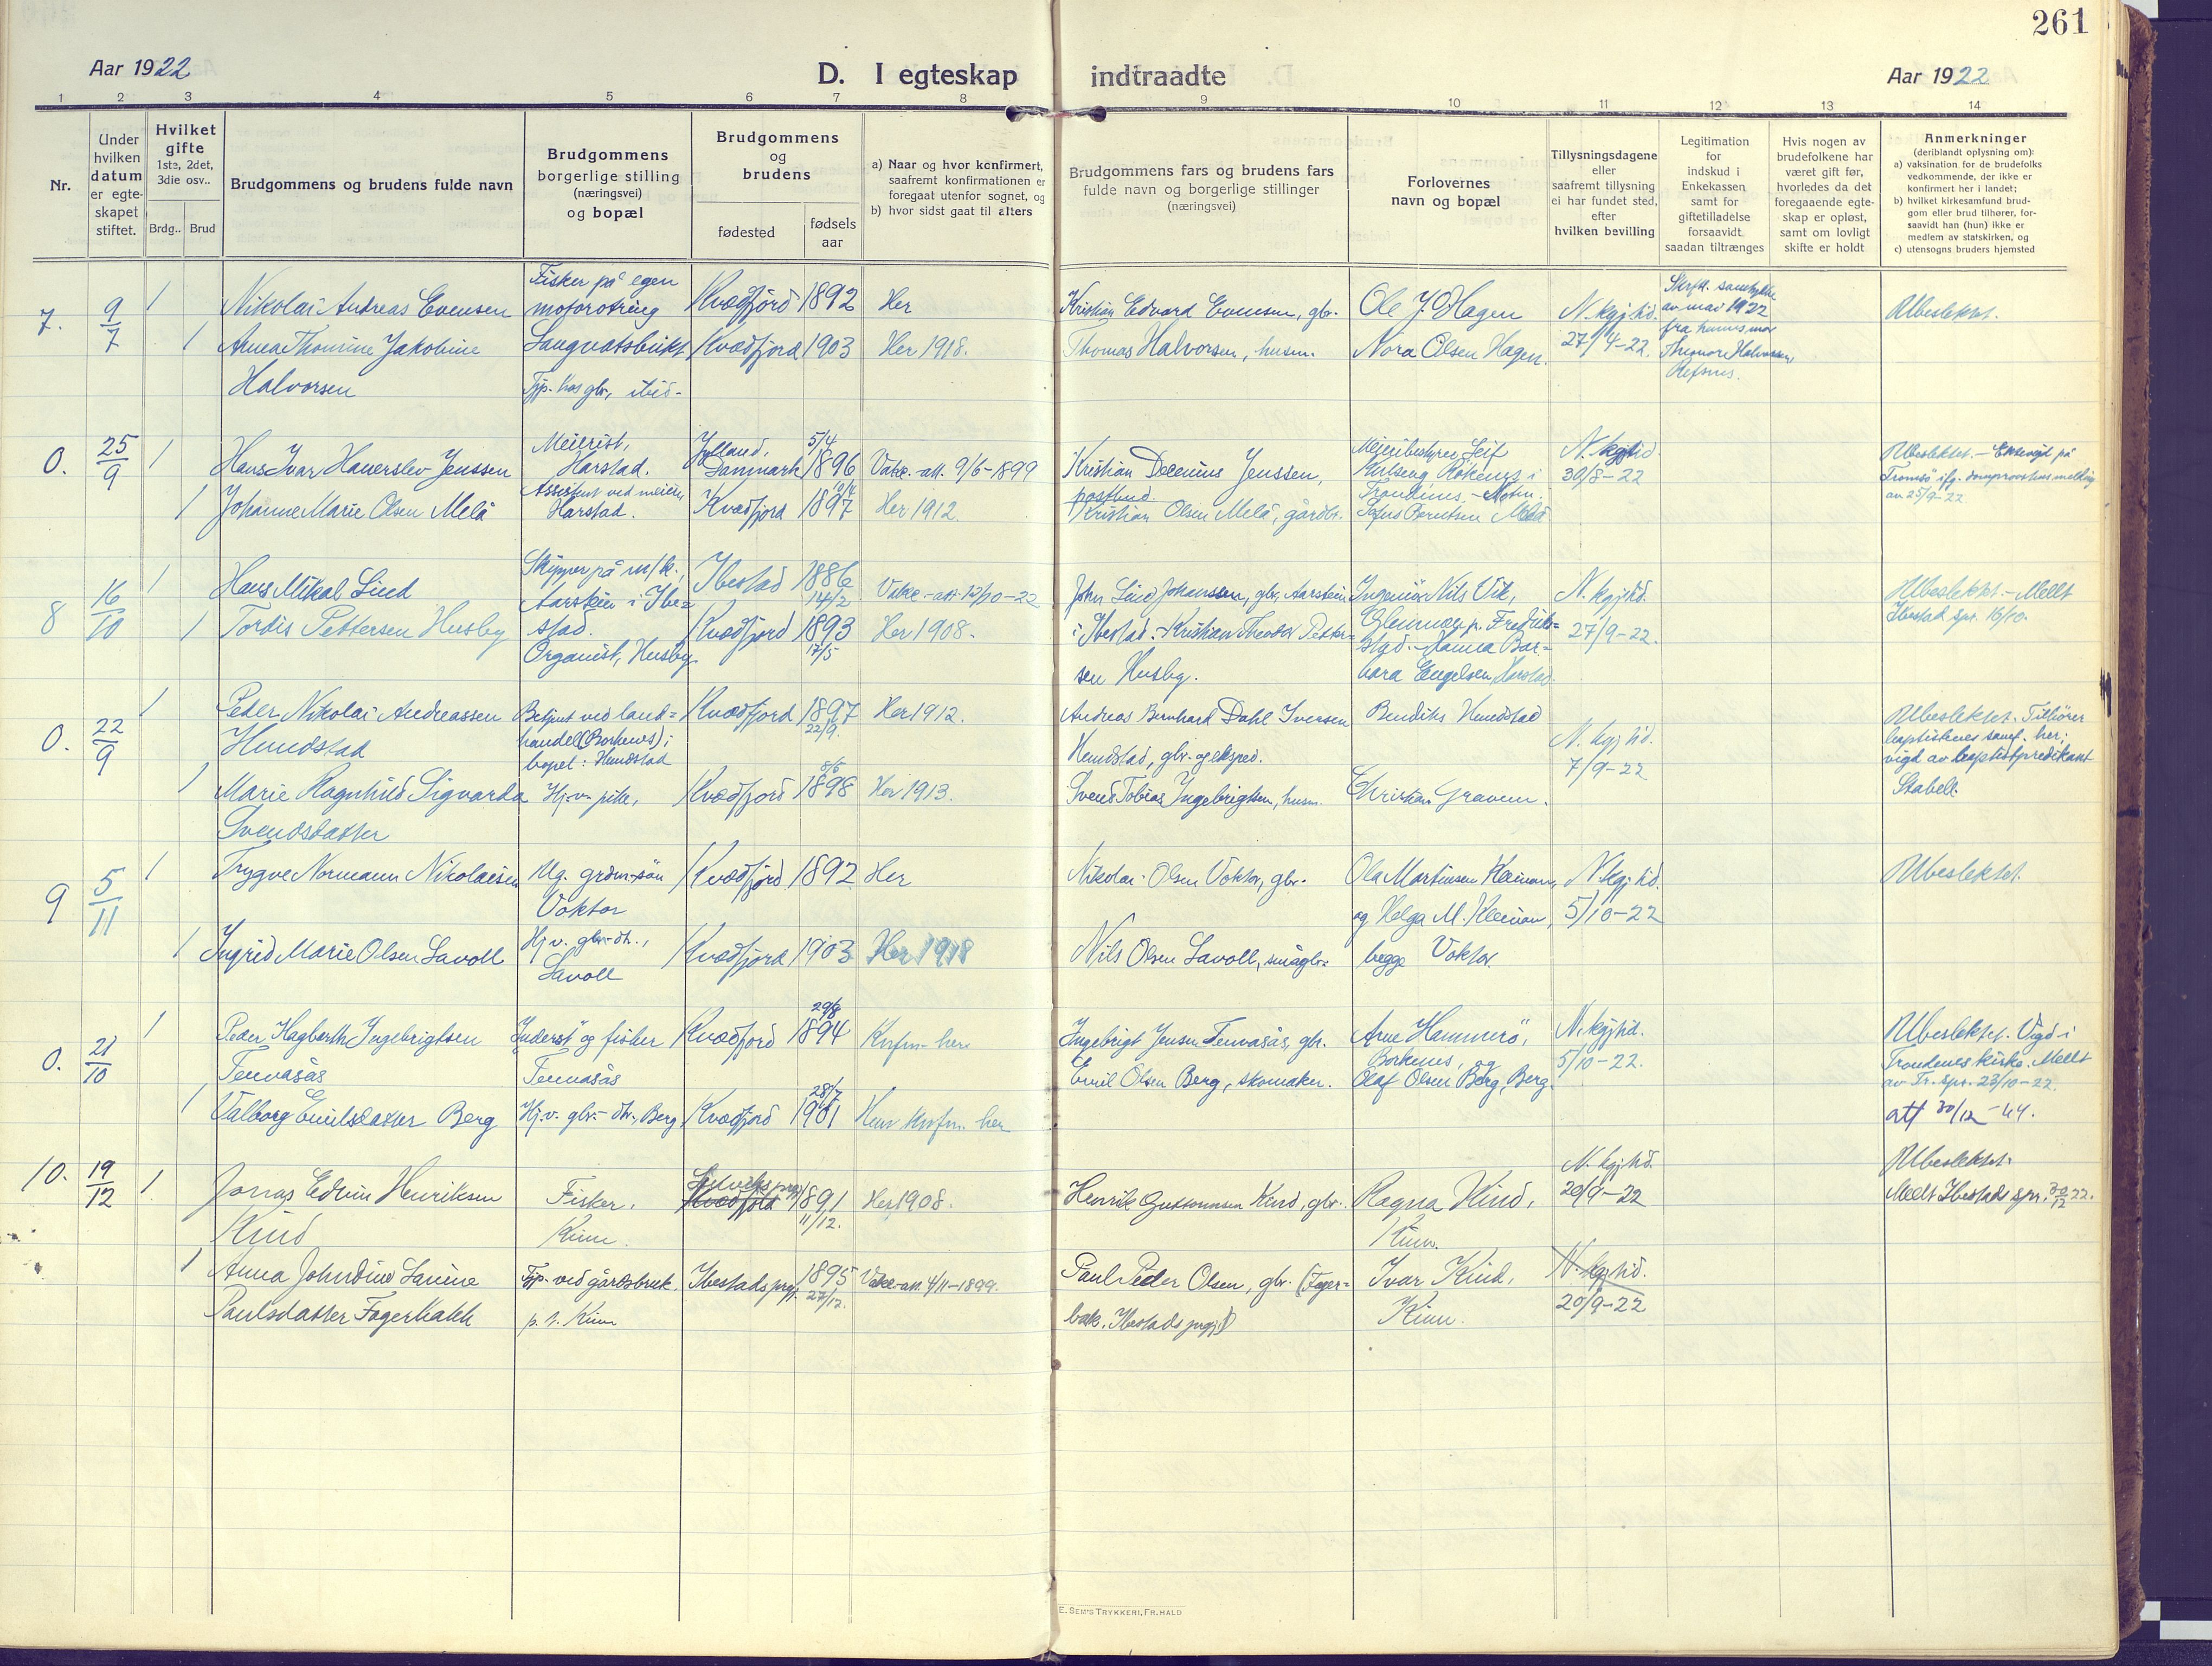 261
Aar 1922
D. I egteskap indtraadte
Aar 1922
1 2 3 4 5 6 7 8 9 10 11 12 13 14
Nr.
Under
hvilken
datum
er egte-
skapet
stiftet.
Hvilket
gifte
1ste, 2det,
3die osv..
Brdg.. Brud
Brudgommens og brudens fulde navn
Brudgommens
borgerlige stilling
(næringsvei)
og bopæl
Brudgommens
og
brudens
fødested
fødsels
aar
a) Naar og hvor konfirmert,
saafremt konfirmationen er
foregaat utenfor sognet, og
b) hvor sidst gaat til alters
Brudgommens fars og brudens fars
fulde navn og borgerlige stillinger
(næringsvei)
Forlovernes
navn og bopæl
Tillysningsdagene
eller
saafremt tillysning
ei har fundet sted,
efter
hvilken bevilling
Legitimation
for
indskud i
Enkekassen
samt for
giftetilladelse
forsaavidt
saadan tiltrænges
Hvis nogen av
brudefolkene har
været gift før,
hvorledes da det
foregaaende egte-
skap er opløst,
samt om lovligt
skifte er holdt
Anmerkninger
(deriblandt oplysning om):
a) vaksination for de brudefolks
vedkommende, der ikke er
konfirmert her i landet;
b) hvilket kirkesamfund brud-
gom eller brud tilhører, for-
saavidt han (hun) ikke er
medlem av statskirken, og
c) utensogns bruders hjemsted
7. 9/7 1
Nikolai Andreas Evensen
Fisker på egen
motorotring
Kvædfjord 1892 Her
Kristian Edvard Evensen, gbr.
Ole J. Hagen
N. kgj. tid.
27/4-22.
Skrftl. samtykke
av mai 1922
fra hennes mor
Halvorsen,
Refsnes.
Ubeslektet.
1
Anna Thomine Jakobine
Halvorsen
Langvatsbukt
Tjp. hos gbr., ibid-
Kvædfjord 1903 Her 1918.
Thomas Halvorsen, husm.
Nora Olsen Hagen.
0. 25/9 1
Hans Ivar Hauerslev Jenssen
Meierist,
Harstad.
Jylland,
Danmark
5/4
1896 Vakc.-att. 9/6-1899
Kristian Decenius Jenssen,
postbud.
Meieribestyrer Leif
N. kgj. tid.
30/8-22
Ubeslektet.- Ektevigd på
Tromsö ifg. domprovstens melding
av 25/9-22
1
Johanne Marie Olsen Melå
Assistent ved meieri
Harstad.
Kvædfjord 10/4
1897 Her 1912.
Kristian Olsen Melå, gårdbr.
Berntsen Melå
8 16/10 1
Hans Mikal Lind
Skipper på m/k.,
Aarstein i Ibe=
stad.
Ibestad 1886
14/2 Vakc.-att. 12/10-22
John Lind Johanssen, gbr, Aarstein
i Ibestad.-Kristian Theodor Petter=
sen Husby.
Ingeniör Nils Vik,
Glemmen p. Fredrik=
stad.-Hanna Bar=
bara Engelsen, Harstad
N. kgj. tid.
27/9-22.
Ubeslektet.-Meldt
Ibestad spr. 16/10.
1
Tordis Pettersen Husby
Organist, Husby
Kvædfjord 1893
17/5 Her 1908.
0. 22/9 1
Peder Nikolai Andreassen
Hundstad
Betjent ved land=
handel (Borkenes);
bopel: Hundstad
Kvædfjord 1897
22/9. Her 1912.
Andreas Bernhard Dahl Iversen
Hundstad, gbr. og eksped.
Bendiks Hundstad
N. kgj. tid.
7/9-22
Ubeslektet. Tilhörer
baptistenes samf. her;
vigd av baptistpredikant
Stabell.
1
Marie Ragnhild Sigvarda
Svendsdatter
Hj.v. pike,
Kvædfjord 8/6
1898 Her 1913.
Svend Tobias Ingebrigtsen, husm.
Christian Graven.
9 5/11 1
Trygve Normann Nikolaisen
Ug. grdm.-sön
Voktor
Kvædfjord 1892 Her
Nikolai Olsen Voktor, gbr.
Ola Martinsen Kleivan,
og Helga M. Kleivan,
begge Voktor.
N. kgj. tid.
5/10-22
Ubeslektet.
1
Ingrid Marie Olsen Lavoll
Hj.v. gbr.-dt.,
Lavoll
Kvædfjord 1903 Her 1918
Nils Olsen Lavoll, smågbr.
0. 21/10 1
Peder Hagbarth Ingebrigtsen
Tennasås
Inderst og fisker
Tennasås
Kvædfjord 29/8
1894 Knfm. her
Ingebrigt Jensen Tennasås, gbr.
Arne Hammerö,
Borkenes, og
Olaf Olsen Berg, Berg.
N. kgj. tid.
5/10-22.
Ubeslektet. Vigd i
Trondenes kirke. Meldt
av Tr. spr. 23/10-22.
att 30/12-44.
1
Valborg Emilsdatter Berg
Hj.v. gbr.-dtr., Berg
Kvædfjord 28/7
1901 Hun knfm. her
Emil Olsen Berg, skomaker.
10. 19/12 1
Jonas Edvin Henriksen
Kind
Fisker,
Kinn.
Kvædfjord 1891
11/12. Her 1908.
Henrik Kind, gbr.
Ragna Kind,
Kinn.
N. kgj. tid.
20/9-22
Ubeslektet.
Meldt Ibestads spr. 30/12 22.
1
Anna Johndine Larine
Paulsdatter Fagerbakk
Tjp. ved gårdsbruk.
p.t. Kinn
Ibestads prgj. 1895
27/12. Vakc.-att. 4/11-1899.
Paul Peder Olsen, gbr. (Fager=
bak. Ibestads prgj.)
Ivar Kind,
Kinn.
N. kgj. tid.
20/9-22
E. SEM'S TRYKKERI, FR.HALD